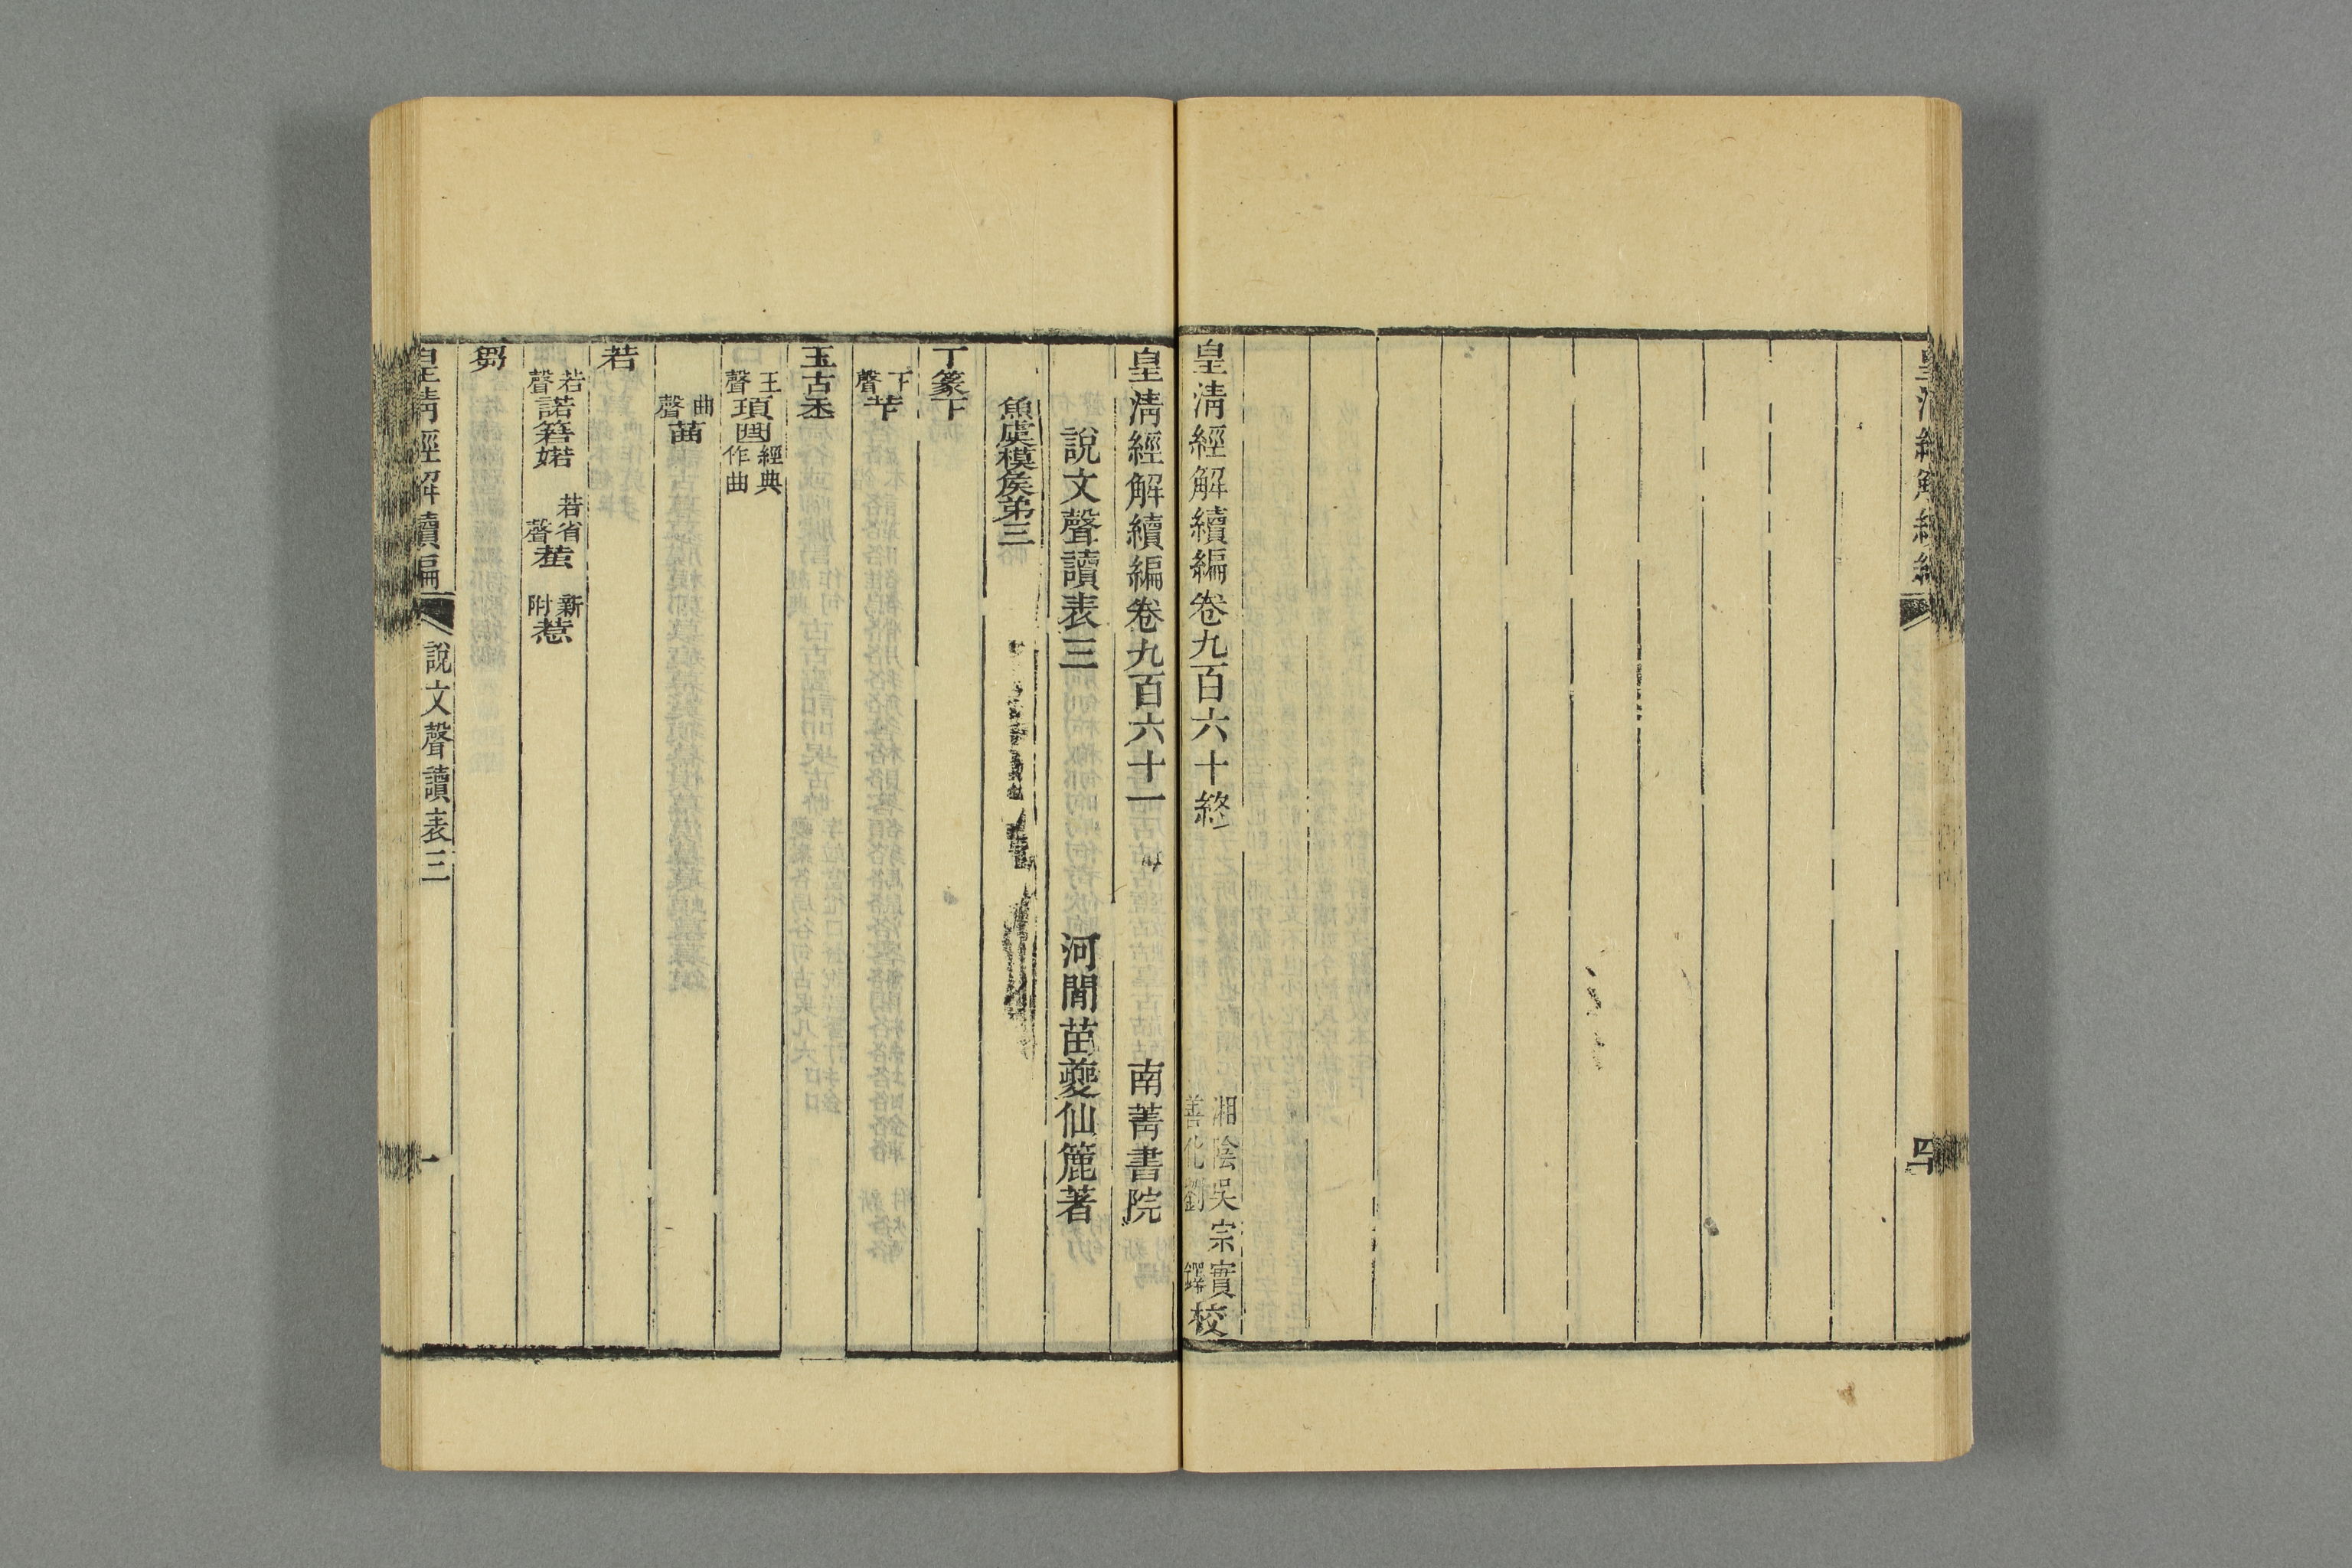 皇清經解續編卷九百六十終
湘陰吳宗實
善化劉鐸
校
四
皇清經解續編卷九百六十一
南菁書院
說文聲讀表三
河閒苗夔仙簏著
魚虞模矦弟三
丅篆下
丅聲芐
玉古𤣪
王聲頊𠚖經典作曲
曲聲苗
若
若聲諾箬婼
若省聲𧌒
新附惹
芻
皇清經解續編
說文聲讀表三
一